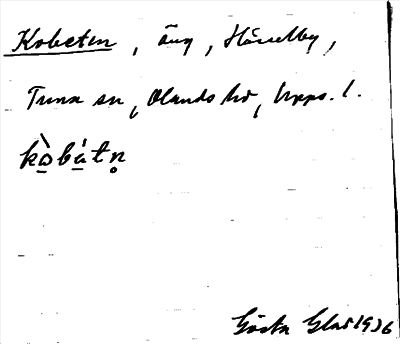 Kobeten, äng, Hässelby,
Tuna sn, Olands hd, Upps. l.
kò̱bá̱tn̥
Gösta Glas 1936